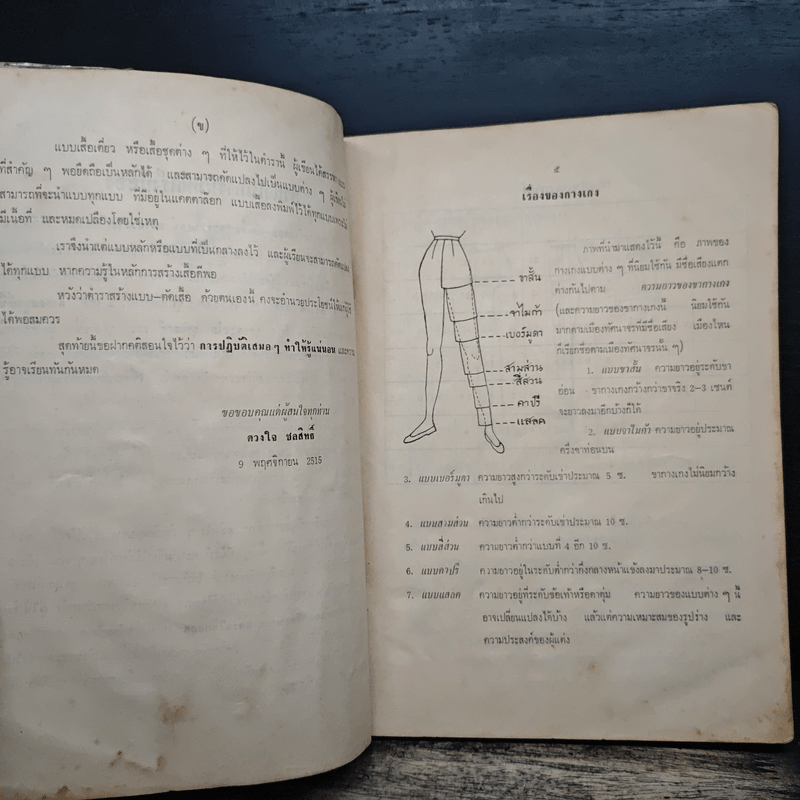 (ข)
แบบเสื้อเดี่ยว หรือเสื้อชุดต่าง ๆ ที่ให้ไว้ในตำรานี้ ผู้เขียนได้
ที่สำคัญ ๆ พอยึดถือเป็นหลักได้ และสามารถดัดแปลงไปเป็นแบบต่าง ๆ
สามารถที่จะนำแบบทุกแบบ ที่มีอยู่ในแคตตาล๊อก แบบเสื้อลงพิมพ์ไว้ได้ทุกแบบ
มีเนื้อที่ และหมดเปลืองโดยใช่เหตุ
เราจึงนำแต่แบบหลักหรือแบบที่เป็นกลางลงไว้ และผู้เรียนจะสามารถ
ได้ทุกแบบ หากความรู้ในหลักการสร้างเสื้อดีพอ
หวังว่าตำราสร้างแบบ-ตัดเสื้อ ด้วยตนเองนี้ คงจะอำนวยประโยชน์
ได้พอสมควร
สุดท้ายนี้ขอฝากคติสอนใจไว้ว่า การปฏิบัติเสมอ ๆ ทำให้รู้แน่นอน และความ
รู้อาจเรียนทันกันหมด
ขอขอบคุณแด่ผู้สนใจทุกท่าน
ดวงใจ ชลสิทธิ์
9 พฤศจิกายน 2515
๕
เรื่องของกางเกง
ขาสั้น
จาไมก้า
เบอร์มูดา
สามส่วน
สี่ส่วน
คาปรี
แสลค
ภาพที่นำมาแสดงไว้นี้ คือ ภาพของ
กางเกงแบบต่าง ๆ ที่นิยมใช้กัน มีชื่อเสียงแตก
ต่างกันไปตาม ความยาวของขากางเกง
(และความยาวของขากางเกงนี้ นิยมใช้กัน
มากตามเมืองทัศนาจรที่มีชื่อเสียง เมืองไหน
ก็เรียกชื่อตามเมืองทัศนาจรนั้น ๆ)
1. แบบขาสั้น ความยาวอยู่ระดับขา
อ่อน ขากางเกงกว้างกว่าขาจริง 2-3 เซนต์
จะยาวลงมาอีกบ้างก็ได้
2. แบบจาไมก้า ความยาวอยู่ประมาณ
ครึ่งขาท่อนบน
3. แบบเบอร์มูดา ความยาวสูงกว่าระดับเข่าประมาณ 5 ซ. ขากางเกงไม่นิยมกว้าง
เกินไป
4. แบบสามส่วน ความยาวต่ำกว่าระดับเข่าประมาณ 10 ซ.
5. แบบสี่ส่วน ความยาวต่ำกว่าแบบที่ 4 อีก 10 ซ.
6. แบบคาปรี ความยาวอยู่ในระดับต่ำกว่ากึ่งกลางหน้าแข้งลงมาประมาณ 8-10 ซ.
7. แบบแสลค ความยาวอยู่ที่ระดับข้อเท้าหรือตาตุ่ม ความยาวของแบบต่าง ๆ นี้
อาจเปลี่ยนแปลงได้บ้าง แล้วแต่ความเหมาะสมของรูปร่าง และ
ความประสงค์ของผู้แต่ง